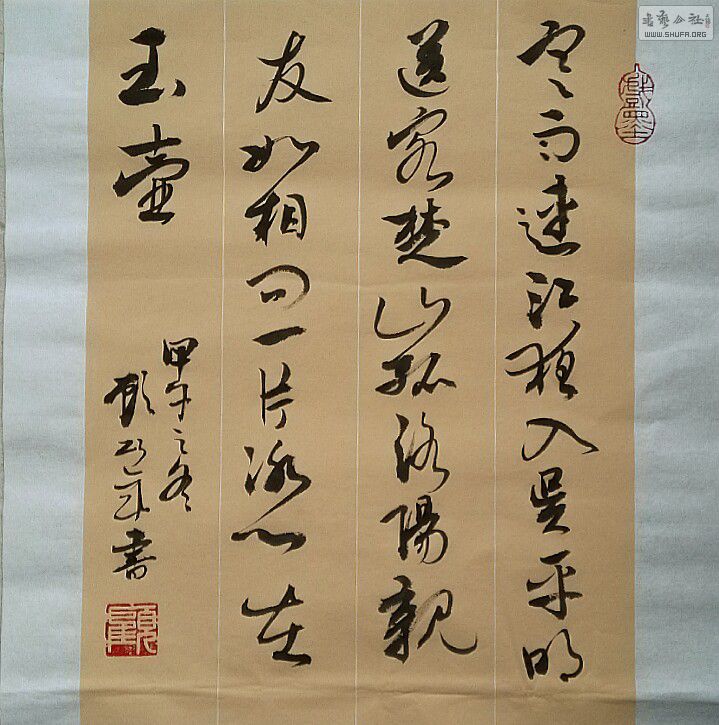 寒雨連江夜入吳平明
送客楚山孤洛陽親
友如相问一片冰心在
玉壺
甲午之冬
書
书艺公社
WWW.SHUFA.ORG